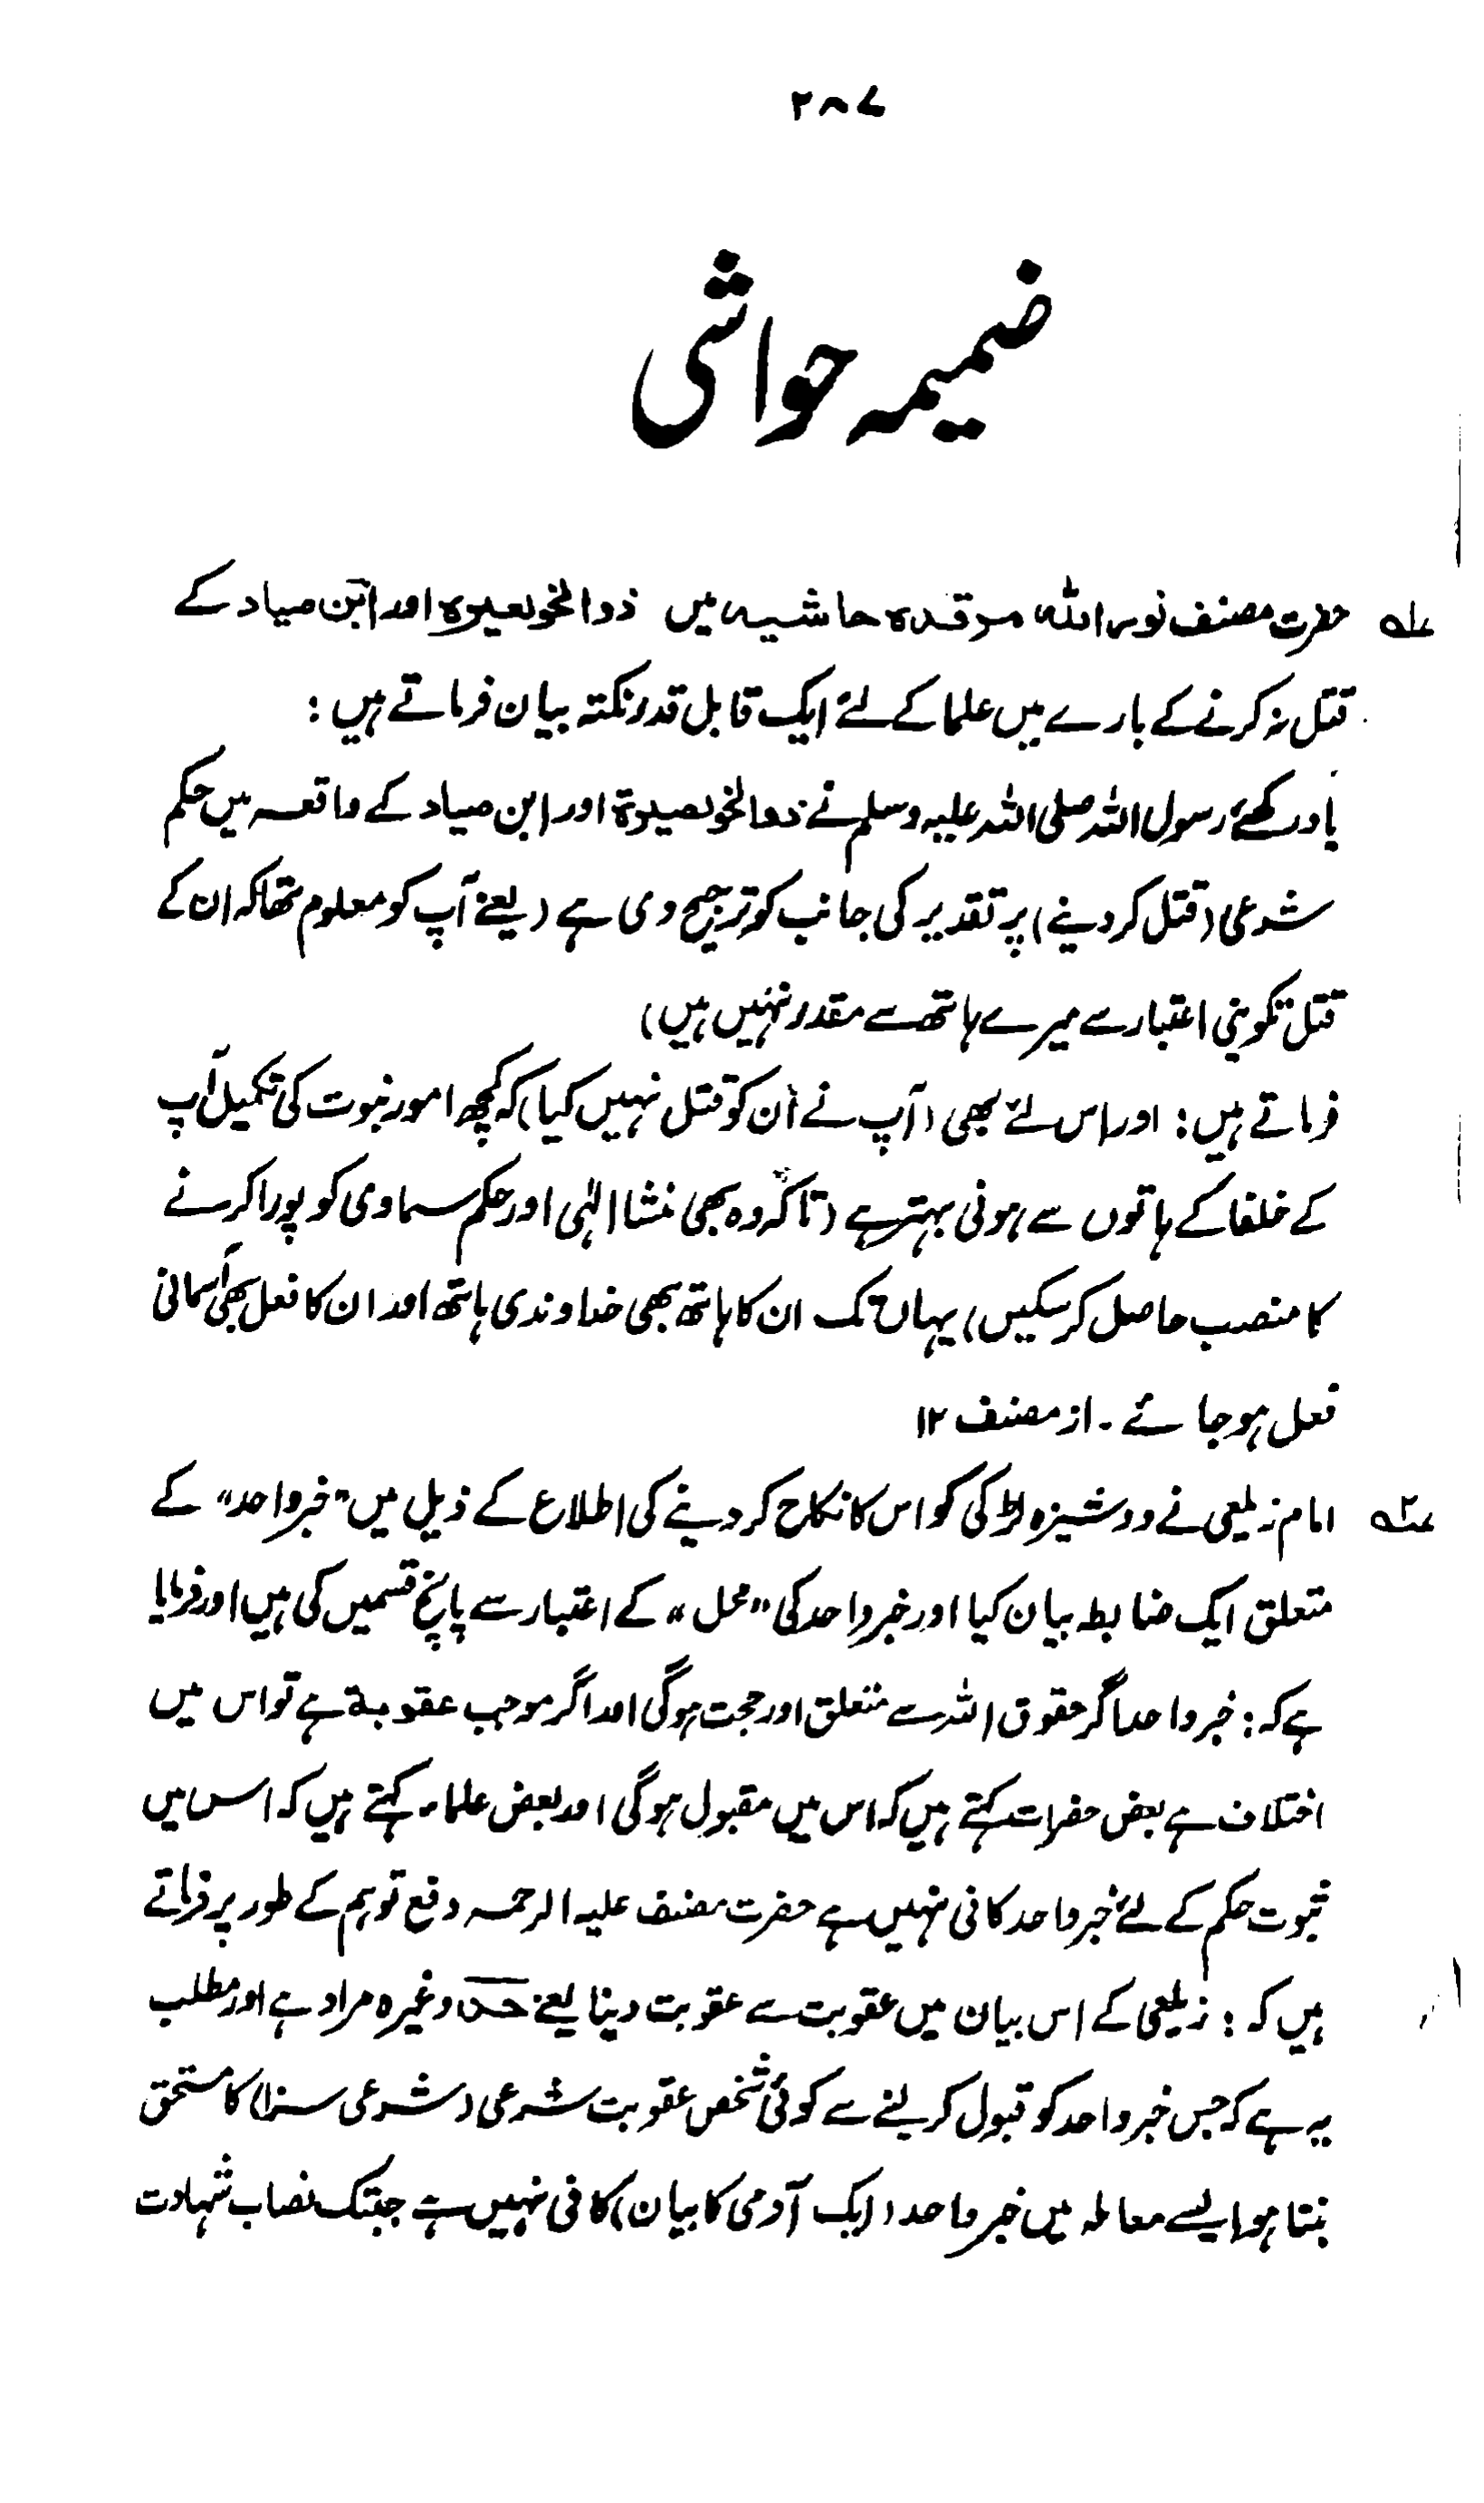 ۲۸۷
ضمیمہ حواشی
ؔ۱ حضرت مصنف نور اللہ مرقدہ حاشیہ میں ذوالخویصرۃ اور ابن صیاد کے
قتل نہ کرنے کے بارے میں علما کے لئے ایک قابل قدر نکتہ بیان فرماتے ہیں :
یاد رکھئے رسول اللہ صلی اللہ علیہ وسلم نے ذوالخویصرۃ اور ابن صیاد کے واقعہ میں حکم
شرعی (قتل کر دینے) پر تقدیر کی جانب کو ترجیح دی ہے (یعنے آپ کو معلوم تھا کہ ان کے
قتل تکوینی اعتبار سے میرے ہاتھ سے مقدر نہیں ہیں)
فرماتے ہیں : اور اس لئے بھی (آپ نے اُن کو قتل نہیں کیا) کہ کچھ امور نبوت کی تکمیل آپ
کے خلفا کے ہاتوں سے ہونی بہتر ہے (تاکہ وہ بھی منشا الٰہی اور حکم سماوی کو پورا کرنے
کا منصب حاصل کر سکیں) یہاں تک ان کا ہاتھ بھی خداوندی ہاتھ اور ان کا فعل بھی آسمانی
فعل ہو جائے ۔ از مصنف ۱۲
ؔ۲ امام زیلعی نے دوشیزہ لڑکی کو اس کا نکاح کر دینے کی اطلاع کے ذیل میں "خبر واحد" کے
متعلق ایک ضابطہ بیان کیا اور خبر واحد کی "محل" کے اعتبار سے پانچ قسمیں کی ہیں اور فرمایا
ہے کہ : خبر واحد اگر حقوق اللہ سے متعلق اور حجت ہوگی اور اگر موجب عقوبۃ ہے تو اس میں
اختلاف ہے بعض حضرات کہتے ہیں کہ اس میں مقبول ہوگی اور بعض علماء کہتے ہیں کہ اس میں
ثبوت حکم کے لئے خبر واحد کافی نہیں ہے حضرت مصنف علیہ الرحمہ دفع توہم کے طور پر فرماتے
ہیں کہ : زیلعی کے اس بیان میں عقوبت سے عقوبت دینا یعنے حد وغیرہ مراد ہے اور مطلب
یہ ہے کہ جس خبر واحد کو قبول کر لینے سے کوئی شخص عقوبت شرعی (شرعی سزا) کا مستحق
بنتا ہو ایسے معاملہ میں خبر واحد (ایک آدمی کا بیان) کافی نہیں ہے جبتک نصاب شہادت